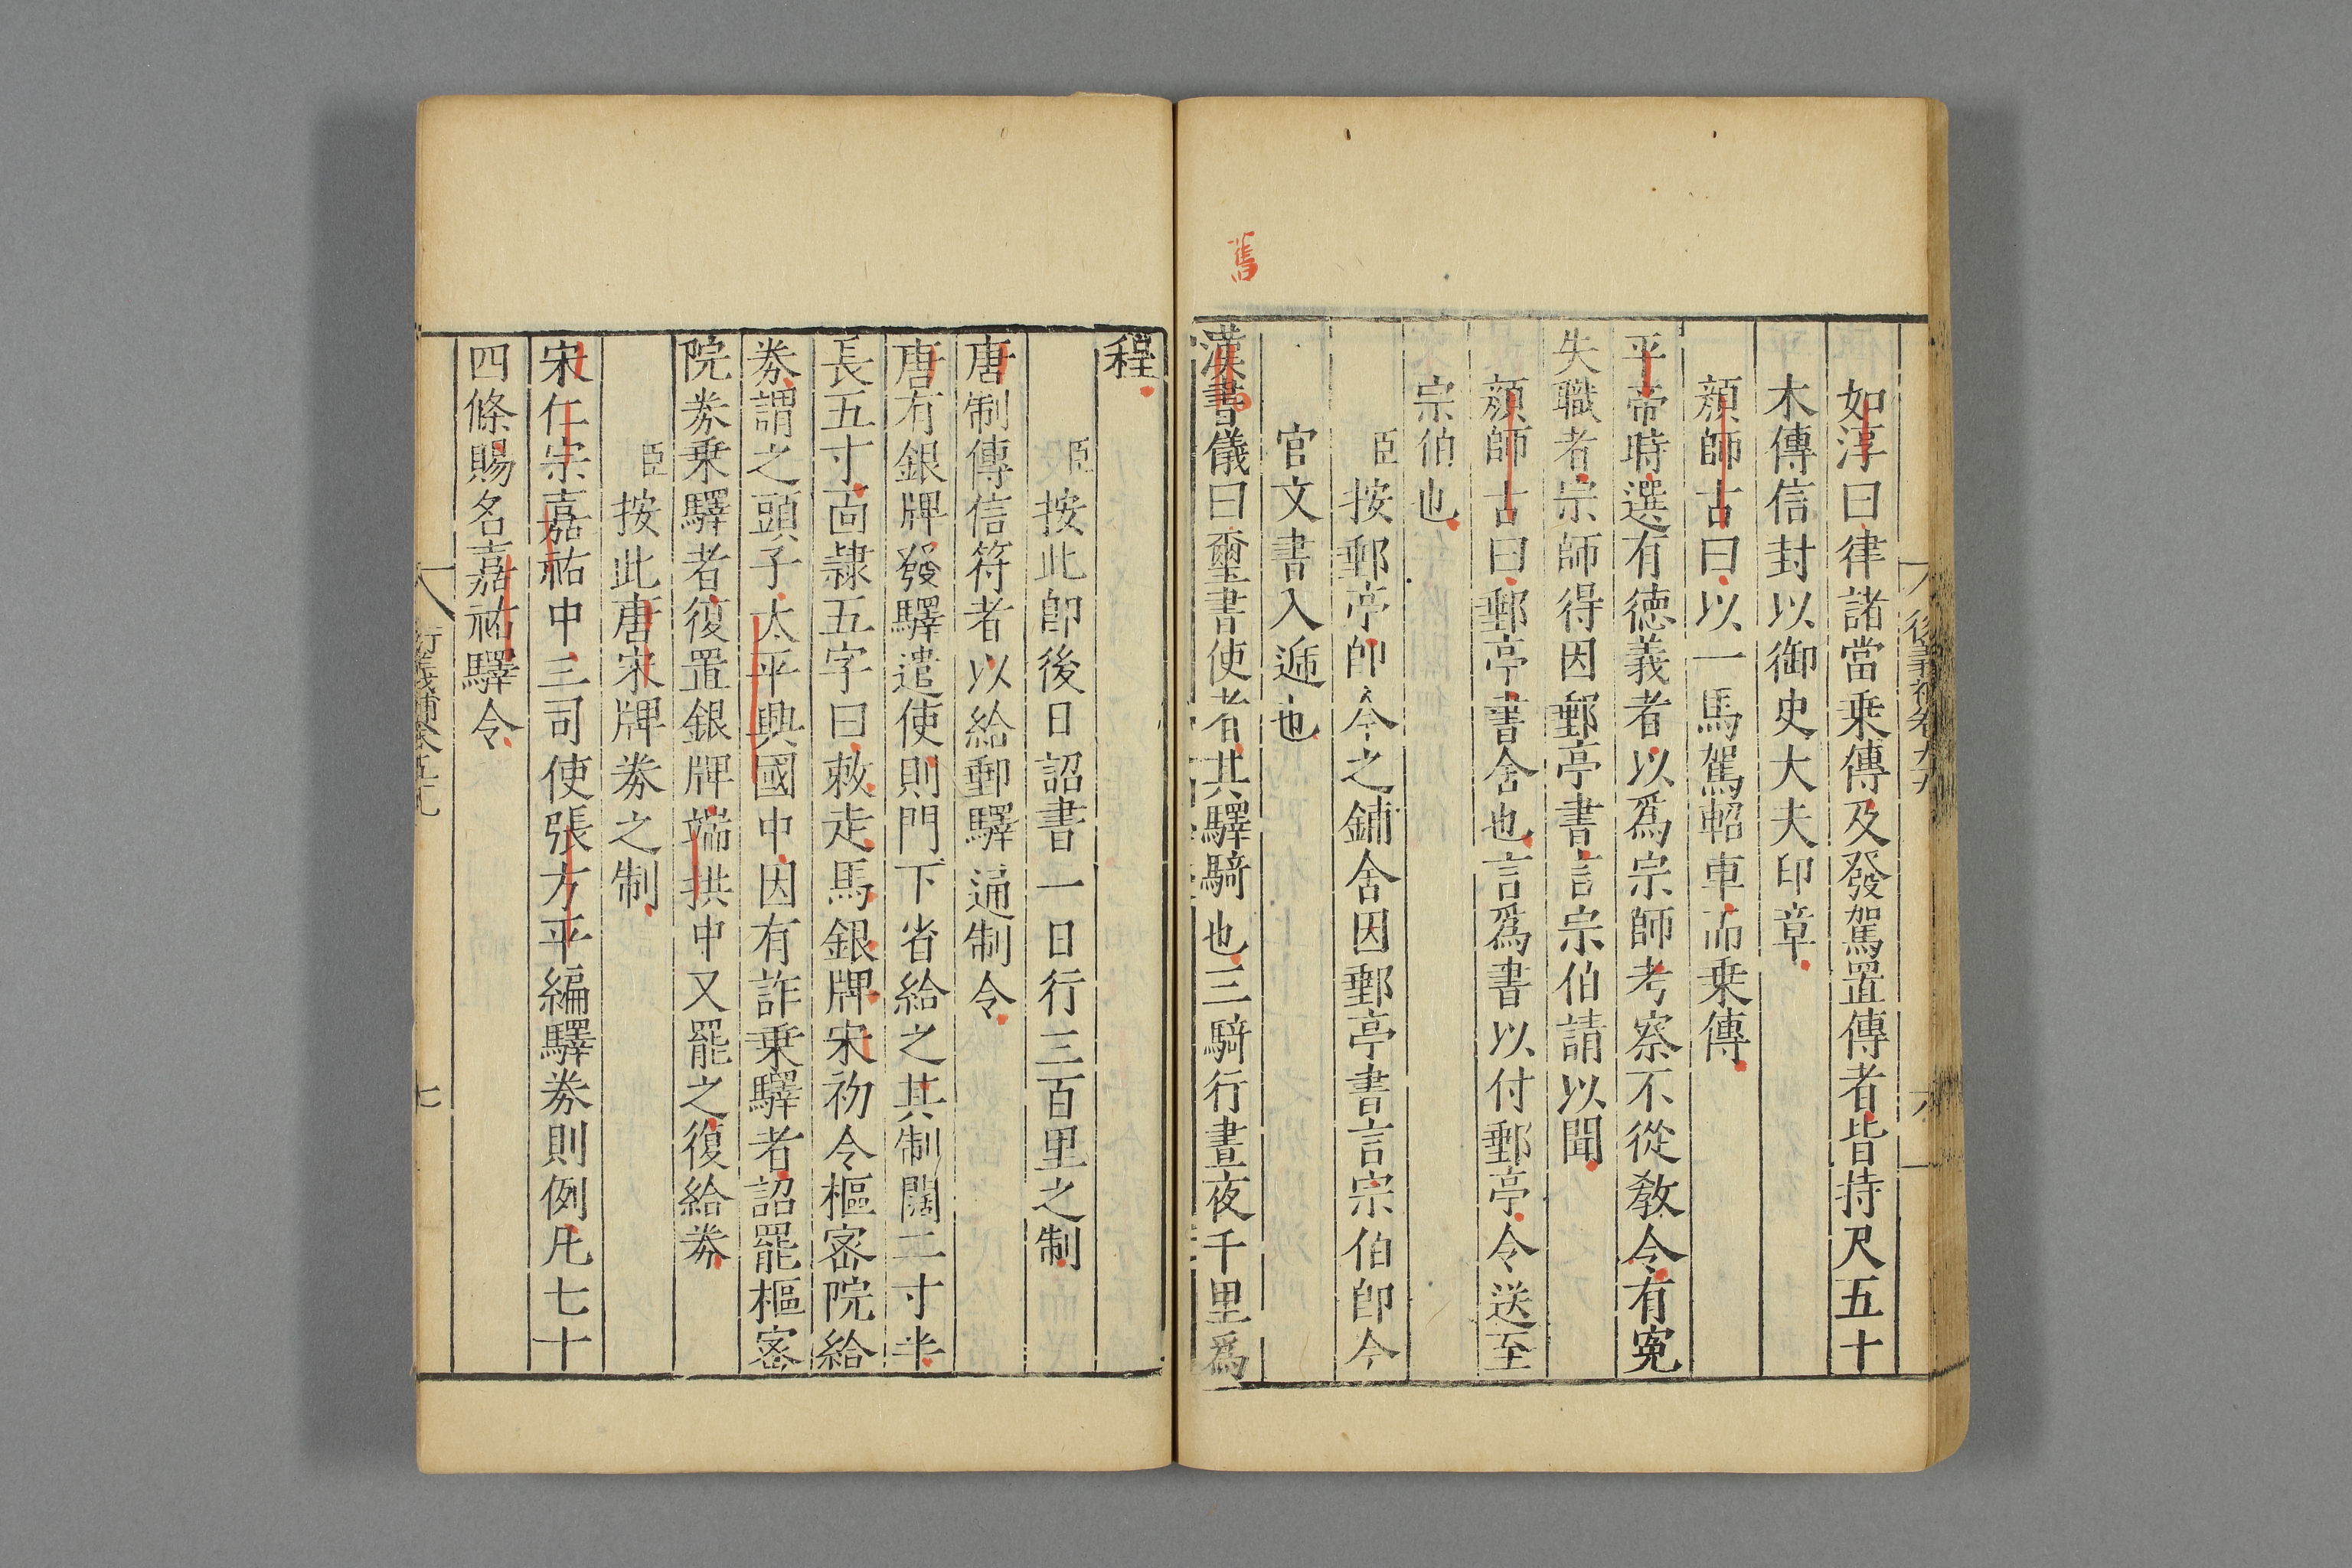 如淳曰律諸當乗傳及發駕置傳者皆持尺五十
木傳信封以御史大夫印章
顔師古曰以一馬駕軺車而乗傳
平帝時選有德義者以爲宗師考察不從敎令有寃
失職者宗師得因郵亭書言宗伯請以聞
顔師古曰郵亭書舍也言爲書以付郵亭令送至
宗伯也
臣按郵亭卽今之鋪舍因郵亭書言宗伯卽今
官文書入逓也
舊
漢書儀曰璽書使者其驛騎也三騎行晝夜千里爲
程
臣按此卽後日詔書一日行三百里之制
唐制傳信符者以給郵驛通制令
唐有銀牌發驛遣使則門下省給之其制闊二寸半
長五寸面隷五字曰敕走馬銀牌宋初令樞密院給
劵謂之頭子太平興國中因有詐乗驛者詔罷樞密
院劵乗驛者復置銀牌端拱中又罷之復給劵
臣按此唐宋牌劵之制
宋仁宗嘉祐中三司使張方平編驛劵則例凡七十
四條賜名嘉祐驛令
七